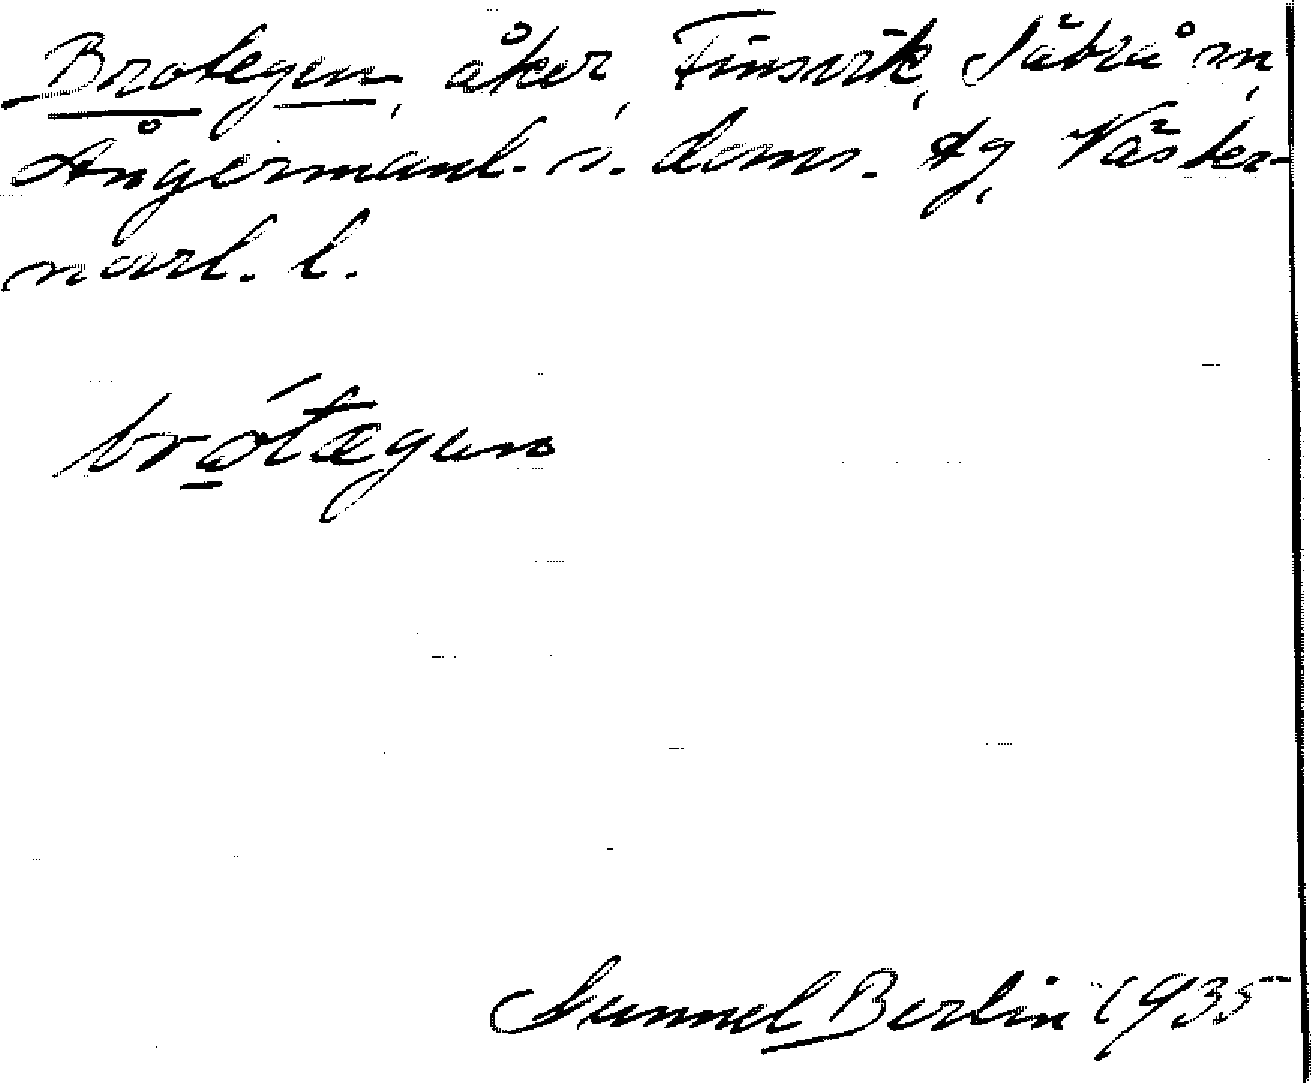 Brotegen, åker, Finsvik, Säbrå sn,
Ångermanl. s. doms. tg, Väster-
norrl. l.
brōtægen
Sunnel Berlin 1935